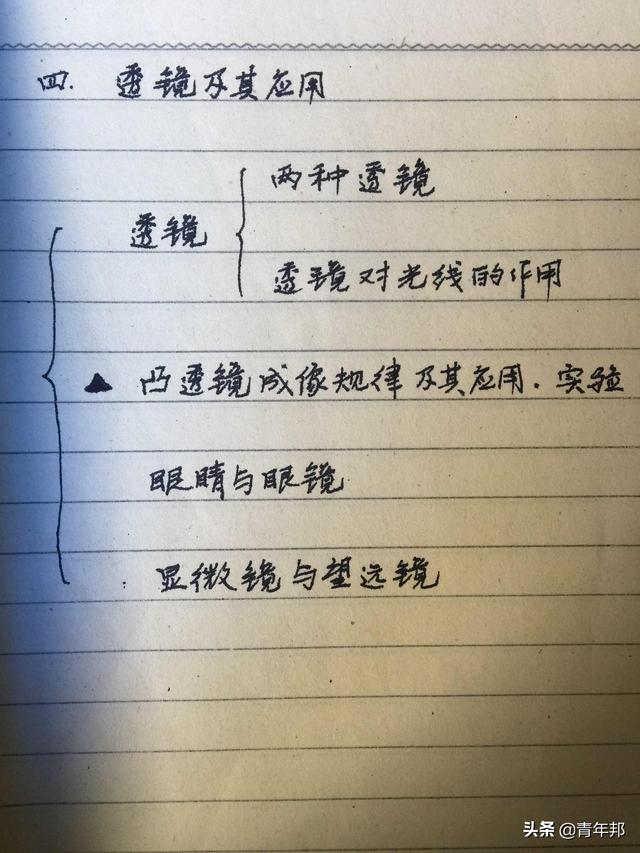 四. 透镜及其应用
两种透镜
透镜
透镜对光线的作用
▲ 凸透镜成像规律及其应用. 实验
眼睛与眼镜
显微镜与望远镜
头条 @青年邦